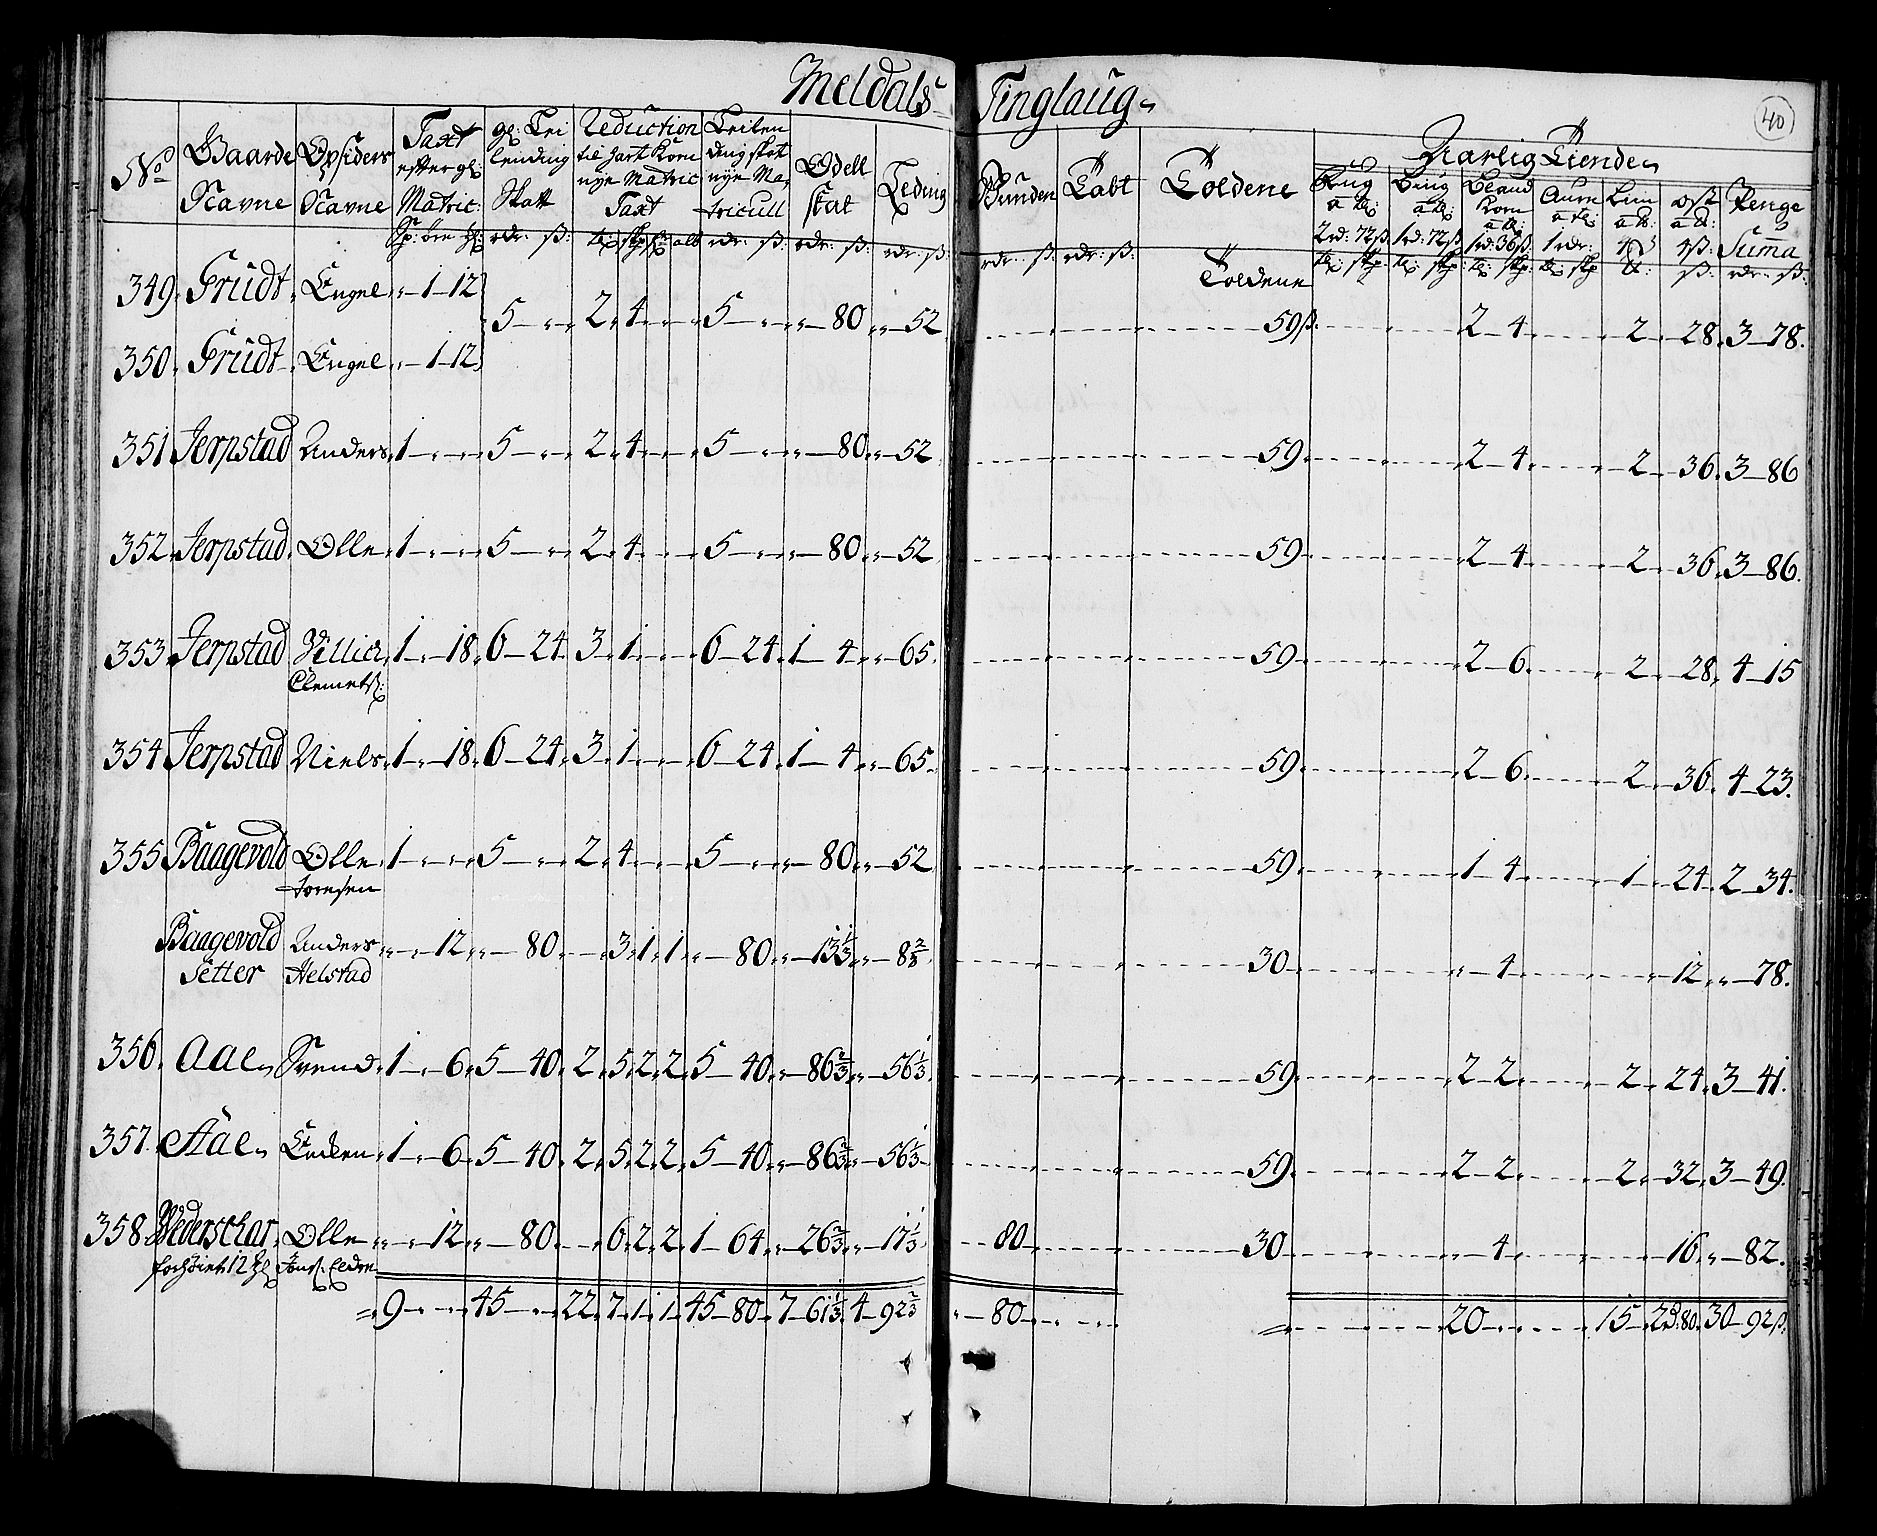 Meldals Tinglaug
40
No Gaarde Navne Opsiders Navne Taxt efter gl: Matric: gl: Lei lending Skatt Reduction til Hart Korn nye Matric Taxt Leilendingskatt nye Matricull Odell skat Leding
Tabt Toldene Aarlig Tiende
Rug Biug Bland Korn Aure Liin ost Penge Suma
2rd: 72ß 1rd: 72ß 1rd: 36ß 1rdr:
Toldene
349 Grudt Engel 1 12 5 2 4 5 80 52 59ß 2 4 2 28 3 78
350 Grudt Engel 1 12
351 Jerpstad Anders 1 5 2 4 5 80 52 59 2 4 2 36 3 86
352 Jerpstad Olle 1 5 2 4 5 80 52 59 2 4 2 36 3 86
353 Jerpstad 1 18 6 24 3 1 6 24 1 4 65 59 2 6 2 28 4 15
Clemetß:
354 Jerpstad Niels 1 18 6 24 3 1 6 24 1 4 65 59 2 6 2 36 4 23
355 Baagevold Olle 1 5 2 4 5 80 52 59 1 4 1 24 2 34
toresen
Baagevold Anders 12 80 3 1 1 80 13 1/3 8 30 4 12 78
Setter Helstad
356 Aae Svend 1 6 5 40 2 5 2 2 5 40 86 2/3 56 1/3 59 2 2 2 24 3 41
357 Aae 1 6 5 40 2 5 2 2 5 40 86 2/3 56 1/3 59 2 2 2 32 3 49
358 Wederschar Olle 12 80 6 2 2 1 64 26 2/3 17 1/3 80 30 4 16 82
forhøiet 12 Jonß:
9 45 22 7 1 1 45 80 7 61 1/3 4 92 2/3 80 20 15 23: 80 30 92ß